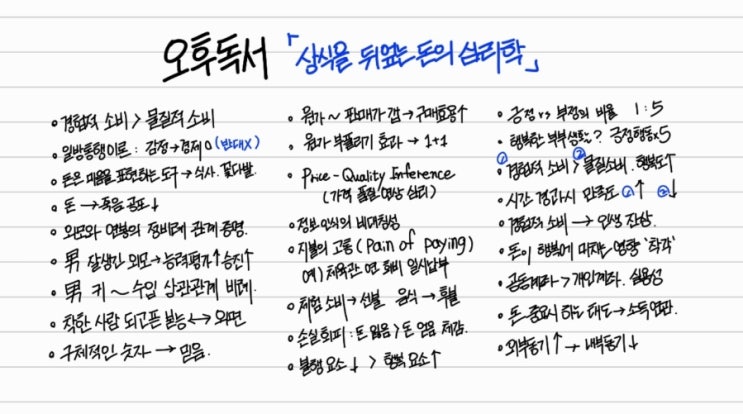 오후독서 「상식을 뒤엎는 돈의 심리학」
• 경험적 소비 > 물질적 소비
• 일방통행이론 : 감정→경제 O (반대X)
• 돈은 마음을 표현하는 도구 → 식사. 꽃다발.
• 돈 → 죽음 공포↓
• 외모와 연봉의 정비례 관계 증명.
• 男 잘생긴 외모→능력평가↑ 승진↑
• 男 키 ~ 수입 상관관계 비례.
• 착한 사람 되고픈 본능 ↔ 외면
• 구체적인 숫자 → 믿음.
• 원가 ~ 판매가 갭 → 구매효용↑
• 원가 부풀리기 효과 → 1+1
• Price-Quality Inference
(가격 품질 연상 심리)
• 정보 인식의 비대칭성
• 지불의 고통 (Pain of paying)
예) 체육관 연 회비 일시납부
• 체험 소비→선불 음식→후불
• 손실회피 : 돈 잃음 > 돈 얻음 체감.
• 불행 요소↓ > 행복 요소↑
• 긍정 vs 부정의 비율 1:5
• 행복한 부부생활? 긍정행동×5
• ①경험적 소비 > ②물질소비. 행복도↑
• 시간 경과시 만족도 ①↑ ②↓
• 경험적 소비 → 인생 잔상.
• 돈이 행복에 미치는 영향 "착각"
• 공동계좌 > 개인계좌. 실용성
• 돈 중요시 하는 태도→소득연관.
• 외부동기↑ → 내부동기↓